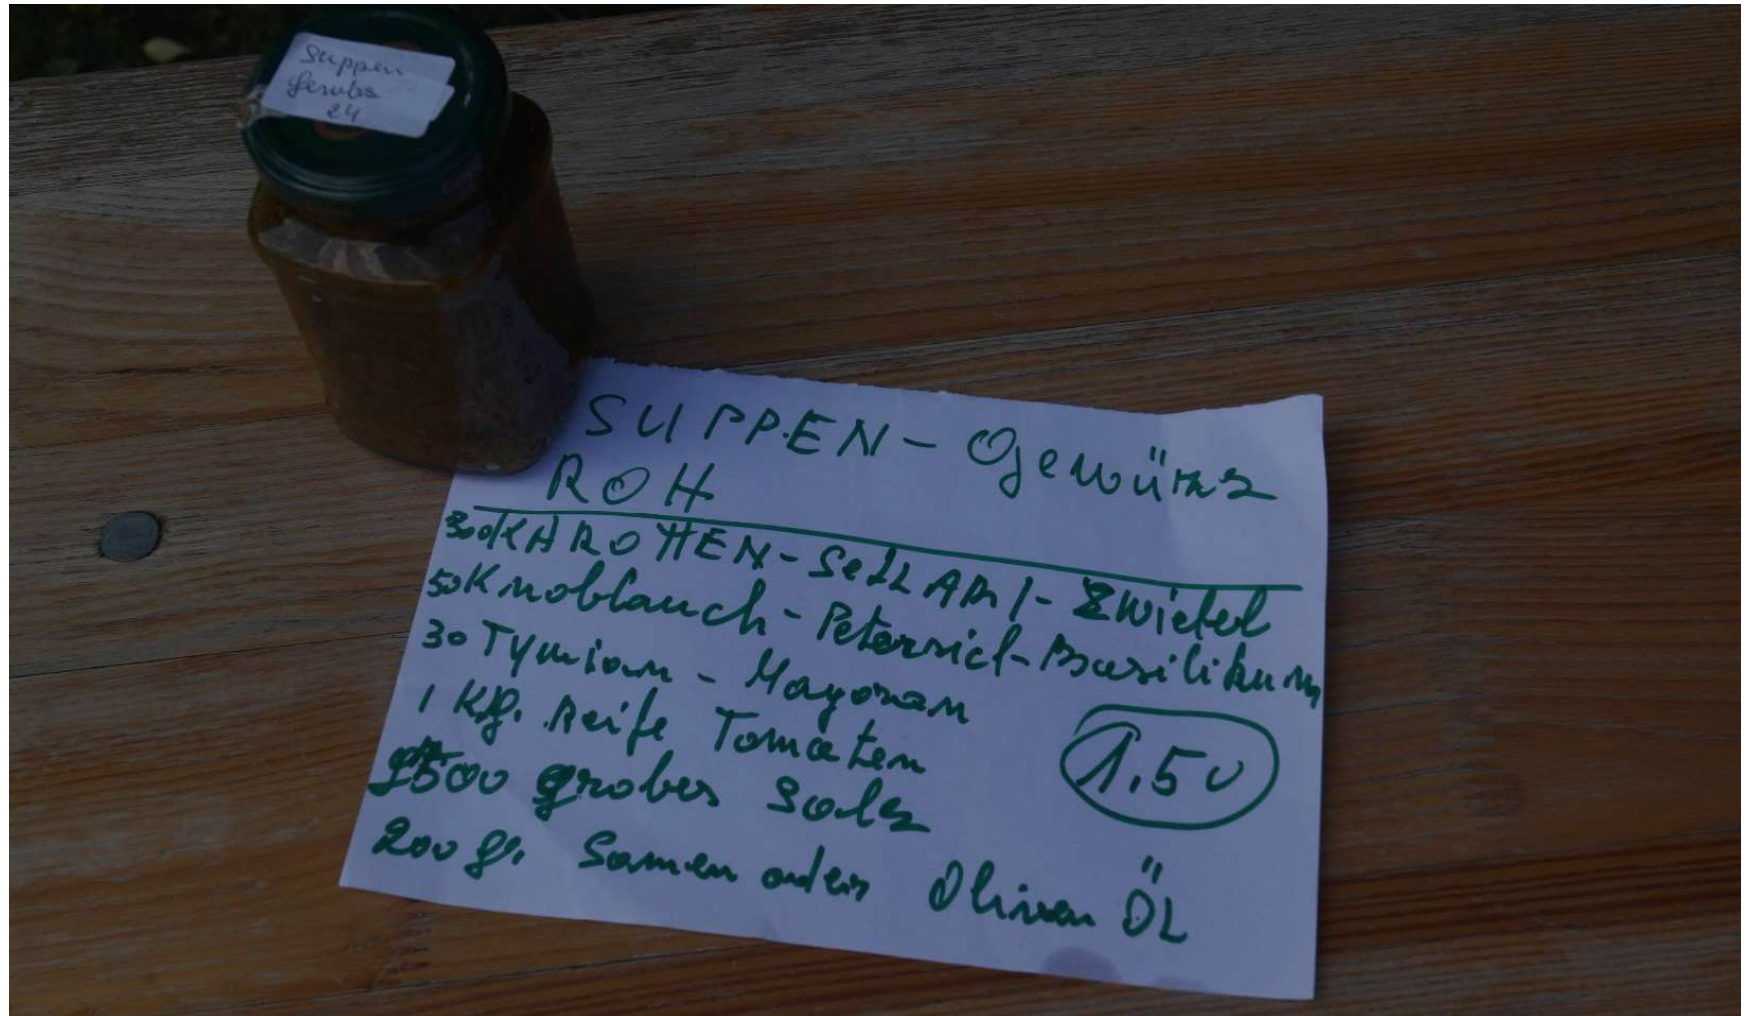 Suppen
Gewürz
24
SUPPEN - Gewürz
ROH
300 KAROTTEN - SELLARI - Zwiebel
50 Knoblauch - Petersiel - Basilikum
30 Tymian - Mayoran
1 Kg. Reife Tomaten
1.50
500 grobes Salz
200 gr. Samen oder Oliven ÖL